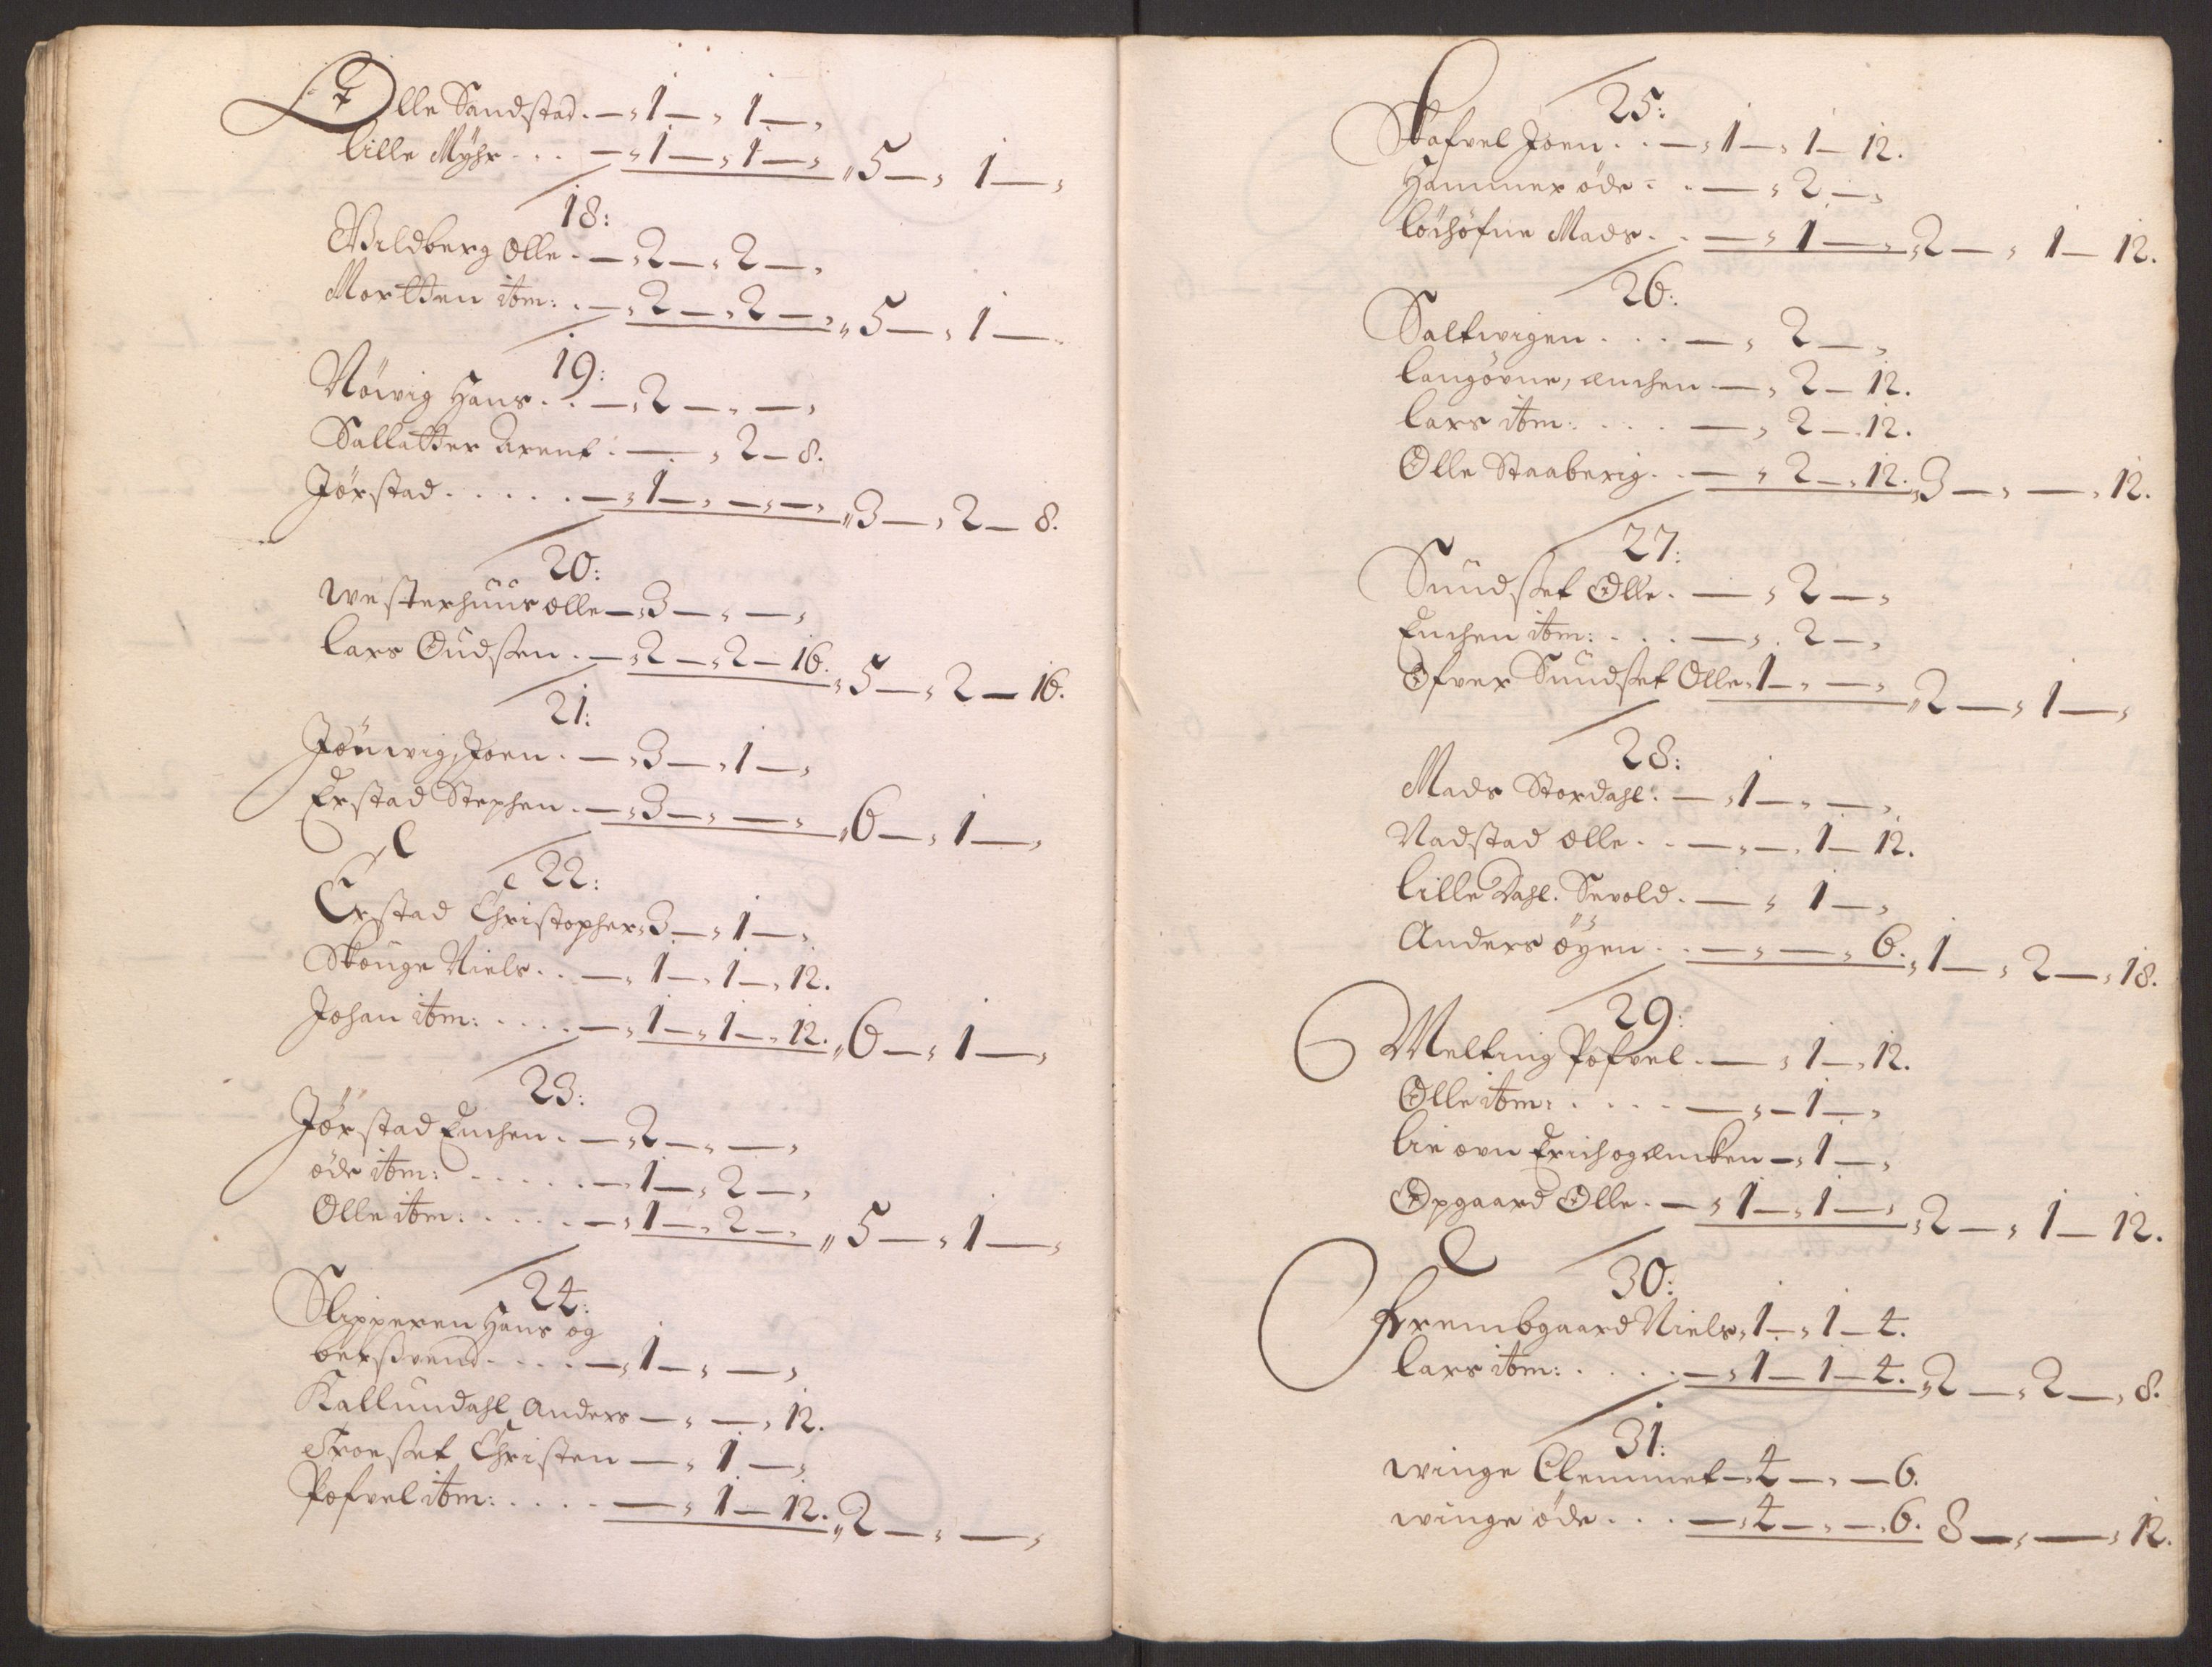 Olle Sandstad. — 1 — 1 —
lille Myhr . . . — 1 — 1 — 5 — 1 —
18:
Vildberg Olle . — 2 — 2 —
Mortten itm: . — 2 — 2 — 5 — 1 —
19:
Nöwig Hans . . — 2 — —
Sallatter Arent : — 2 — 8.
Jörstad . . . . . — 1 — — — 3 — 2 — 8.
20:
westerhuus olle — 3 — —
Lars Oudsen . — 2 — 2 — 16. 5 — 2 — 16.
21:
Jönwig, Joen . — 3 — 1 —
Erstad Stephen . — 3 — — 6 — 1 —
22:
Erstad Christopher 3 — 1 —
Skouge Niels . . — 1 — 1 — 12.
Johan itm: . . . . — 1 — 1 — 12. 6 — 1 —
23:
Jörstad Enchen . — 2 — —
öde itm: . . . . . — 1 — 2 —
Olle itm: . . . . — 1 — 2 — 5 — 1 —
24:
Slipperen Hans og
berswend . . . . — 1 — —
Kallundahl Anders — — 12.
Troeset Christen — 1 —
Pofvel itm: . . . . — 1 — 12. 2 — —
25:
Skafvel Joen . . — 1 — 1 — 12.
Hammer öde . . — 2 —
Löchöfne Mads . . — 1 — 2 — 1 — 12.
26:
Saltwigen . . . — 2 —
Langövne, Enchen — 2 — 12.
Lars itm: . . . . — 2 — 12.
Olle Staaberig . . — 2 — 12. 3 — — 12.
27:
Sundset Olle . — 2 —
Enchen itm: . . . — 2 —
Ofver Sundset Olle 1 — — 2 — 1 —
28:
Mads Stordahl . — 1 — —
Nadstad olle . . — — 1 — 12.
Lille Dahl. Sevold . — 1 —
Anders öyen . . — — 6. 1 — 2 — 18.
29:
Melting Pofvel . — 1 — 12.
Olle itm: . . . . — — 1 —
Lie Erich og Encken — 1 —
Opgaard Olle . — 1 — 1 — 2 — 1 — 12.
30:
Frembgaard Niels 1 — 1 — 4.
Lars itm: . . . . — 1 — 1 — 4. 2 — 2 — 8.
31:
winge Clemmet — 4 — — 6.
winge öde . . . — 4 — — 6. 8 — — 12.